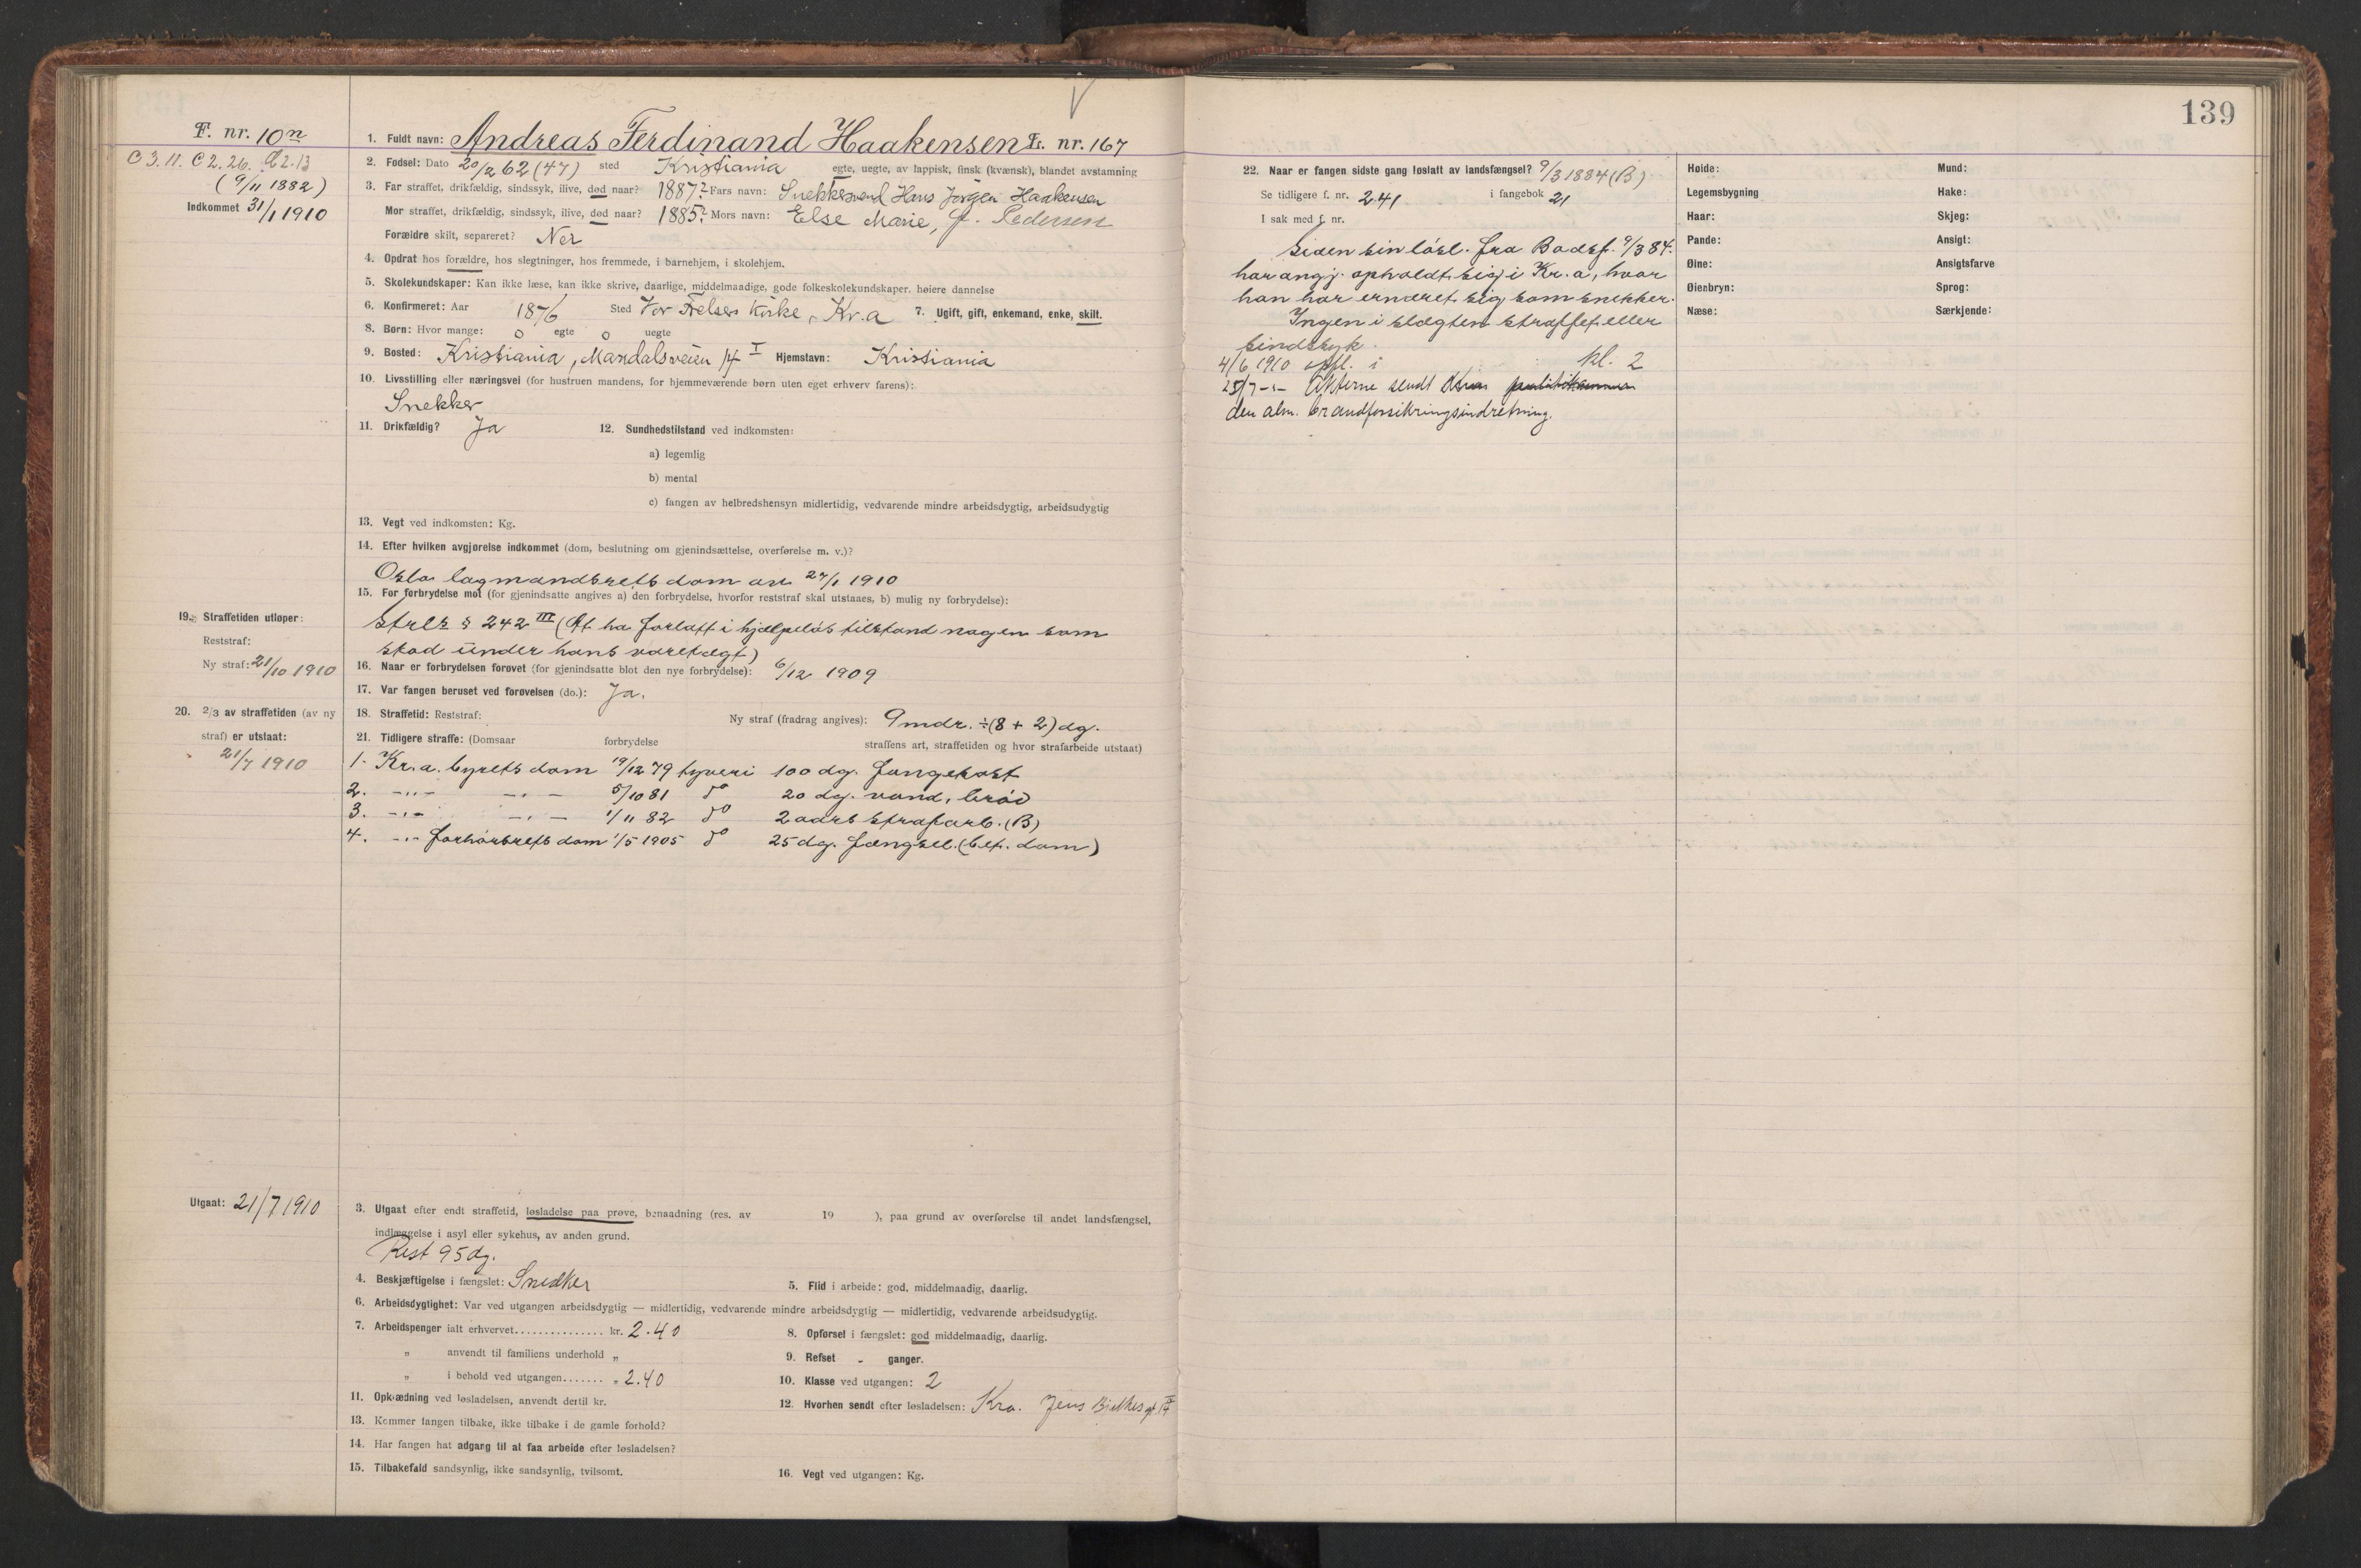 139
F. nr. 10n
C 3. 11. C 2. 26. A 2. 13
(9/11 1882)
Indkommet 31/1 1910
1. Fuldt navn: Andreas Ferdinand Haakensen Fr. nr. 167
2. Fødsel: Dato 20/2 62 (47) sted Kristiania egte, uegte, av lappisk, finsk (kvænsk), blandet avstamning
3. Far straffet, drikfældig, sindssyk, ilive, død naar? 1887? Fars navn: Snekkersvend Hans Jørgen Haakensen
Mor straffet, drikfældig, sindssyk, ilive, død naar? 1885? Mors navn: Else Marie, f. Pedersen
Forældre skilt, separeret? Nei
4. Opdrat hos forældre, hos slegtninger, hos fremmede, i barnehjem, i skolehjem.
5. Skolekundskaper: Kan ikke læse, kan ikke skrive, daarlige, middelmaadige, gode folkeskolekundskaper. høiere dannelse
6. Konfirmeret: Aar 1876 Sted Vor Frelsers Kirke, Kr.a 7. Ugift, gift, enkemand, enke, skilt.
8. Børn: Hvor mange: 0 egte 0 uegte
9. Bosted: Kristiania, Mardalsveien 14 I Hjemstavn: Kristiania
10. Livsstilling eller næringsvei (for hustruen mandens, for hjemmeværende børn uten eget erhverv farens):
Snekker
11. Drikfældig? Ja 12. Sundhedstilstand ved indkomsten:
a) legemlig
b) mental
c) fangen av helbredshensyn midlertidig, vedvarende mindre arbeidsdygtig, arbeidsudygtig
13. Vegt ved indkomsten: Kg.
14. Efter hvilken avgjørelse indkommet (dom, beslutning om gjenindsættelse, overførelse m. v.)?
Oslo lagmandsrets dom av 27/1 1910
15. For forbrydelse mot (for gjenindsatte angives a) den forbrydelse, hvorfor reststraf skal utstaaes, b) mulig ny forbrydelse):
strlr § 242 III (At ha forlatt i hjælpeløs tilstand nogen som
stod under hans varetægt)
16. Naar er forbrydelsen forøvet (for gjenindsatte blot den nye forbrydelse): 6/12 1909
17. Var fangen beruset ved forøvelsen (do.): Ja.
18. Straffetid: Reststraf: Ny straf (fradrag angives): 9 mdr. ÷ (8 + 2) dg.
19. Straffetiden utløper:
Reststraf:
Ny straf: 21/10 1910
20. 2/3 av straffetiden (av ny
straf) er utstaat:
21/7 1910
21. Tidligere straffe: (Domsaar forbrydelse straffens art, straffetiden og hvor strafarbeide utstaat)
1. Kr.a. byrets dom 19/12 79 tyveri 100 dg. fangekost
2. -„- -„- 5/10 81 do 20 dg. vand, brød
3. -„- -„- 1/11 82 do 2 aars strafarb. (B)
4. -„- forhørsrets dom 1/5 1905 do 25 dg. fængsel. (bet. dom)
Utgaat: 21/7 1910
3. Utgaat efter endt straffetid, løsladelse paa prøve, benaadning (res. av 19 ), paa grund av overførelse til andet landsfængsel,
indlæggelse i asyl eller sykehus, av anden grund.
Rest 95 dg.
4. Beskjæftigelse i fængslet: Snedker 5. Flid i arbeide: god, middelmaadig, daarlig.
6. Arbeidsdygtighet: Var ved utgangen arbeidsdygtig — midlertidig, vedvarende mindre arbeidsdygtig — midlertidig, vedvarende arbeidsudygtig.
7. Arbeidspenger ialt erhvervet............... kr. 2.40 8. Opførsel i fængslet: god middelmaadig, daarlig.
„ anvendt til familiens underhold „ 9. Refset - ganger.
„ i behold ved utgangen....... „ 2.40 10. Klasse ved utgangen: 2
11. Opklædning ved løsladelsen, anvendt dertil kr. 12. Hvorhen sendt efter løsladelsen: Kra. Jens Bjelkes gt. 14
13. Kommer fangen tilbake, ikke tilbake i de gamle forhold?
14. Har fangen hat adgang til at faa arbeide efter løsladelsen?
15. Tilbakefald sandsynlig, ikke sandsynlig, tvilsomt. 16. Vegt ved utgangen: Kg.
22. Naar er fangen sidste gang løslatt av landsfængsel? 9/3 1884 (B)
Se tidligere f. nr. 241 i fangebok 21
I sak med f. nr.
Siden sin løsl. fra Bodsf. 9/3 84.
har angj. opholdt sig i Kr.a, hvor
han har ernæret sig som snekker.
Ingen i slægten straffet eller
sindssyk.
4/6 1910 opfl. i kl. 2
25/7 -„- Akterne sendt
den alm. brandforsikringsindretning.
Høide: Mund:
Legemsbygning Hake:
Haar: Skjeg:
Pande: Ansigt:
Øine: Ansigtsfarve
Øienbryn: Sprog:
Næse: Særkjende: